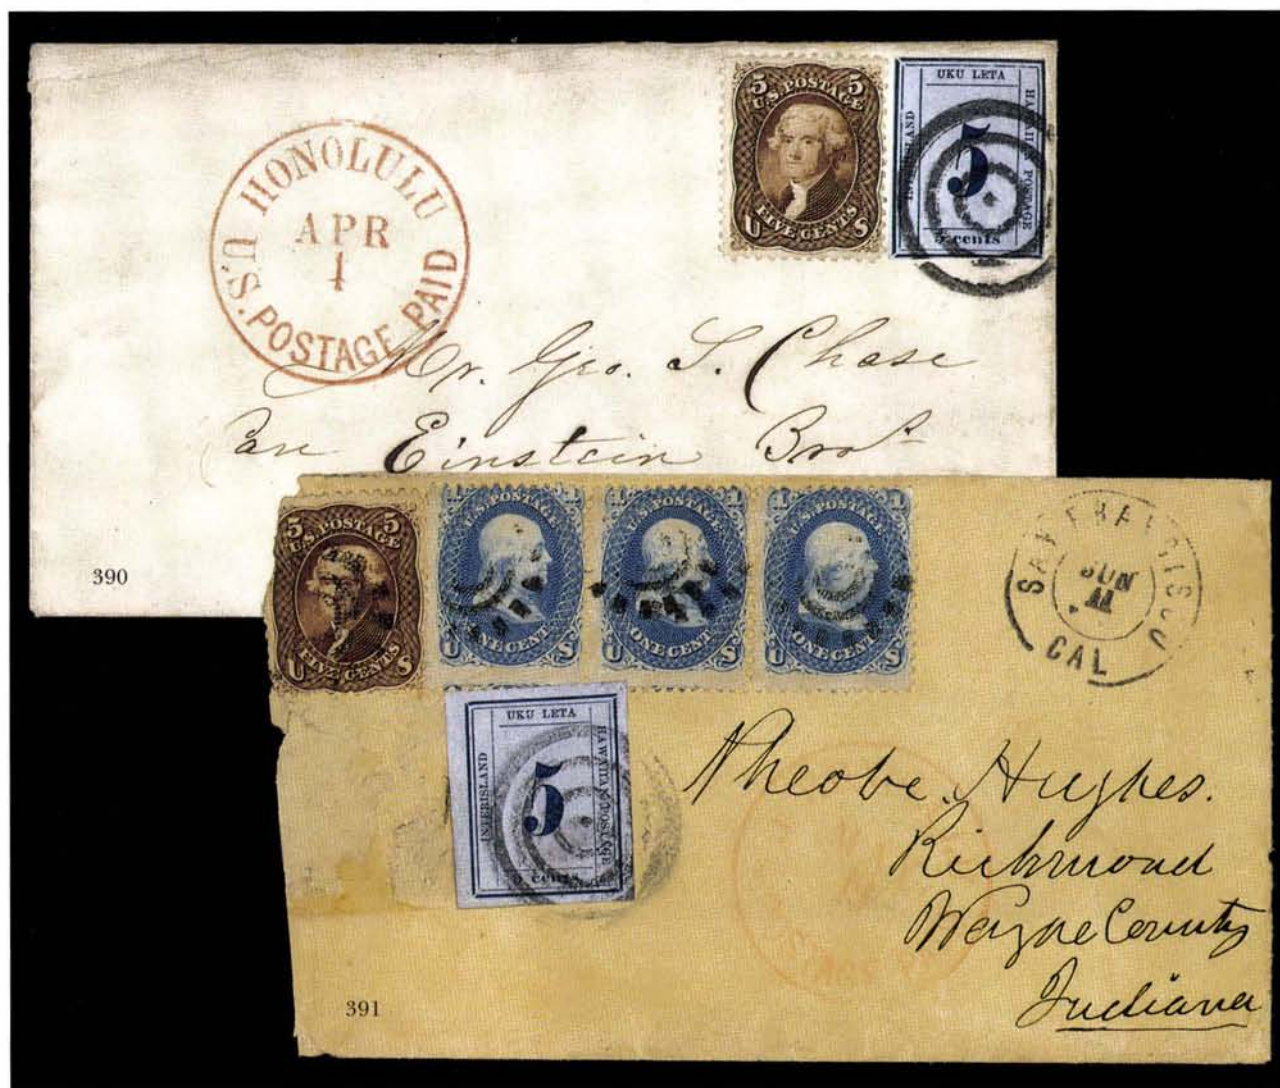 5 5
U.S. POSTAGE
FIVE CENTS
U S
UKU LETA
INTERISLAND
HAWAIIAN POSTAGE
5
5 cents
HONOLULU
APR
1
U.S. POSTAGE PAID
Mr. Geo. S. Chase
Care Einstein Bros.
390
5 5
U.S. POSTAGE
FIVE CENTS
U S
1 1
U.S. POSTAGE
ONE CENT
U S
1 1
U.S. POSTAGE
ONE CENT
U S
1 1
U.S. POSTAGE
ONE CENT
U S
SAN FRANCISCO
JUN
11
CAL
UKU LETA
INTERISLAND
HAWAIIAN POSTAGE
5
5 cents
Pheobe Hughes.
Richmond
Wayne County
Indiana
391